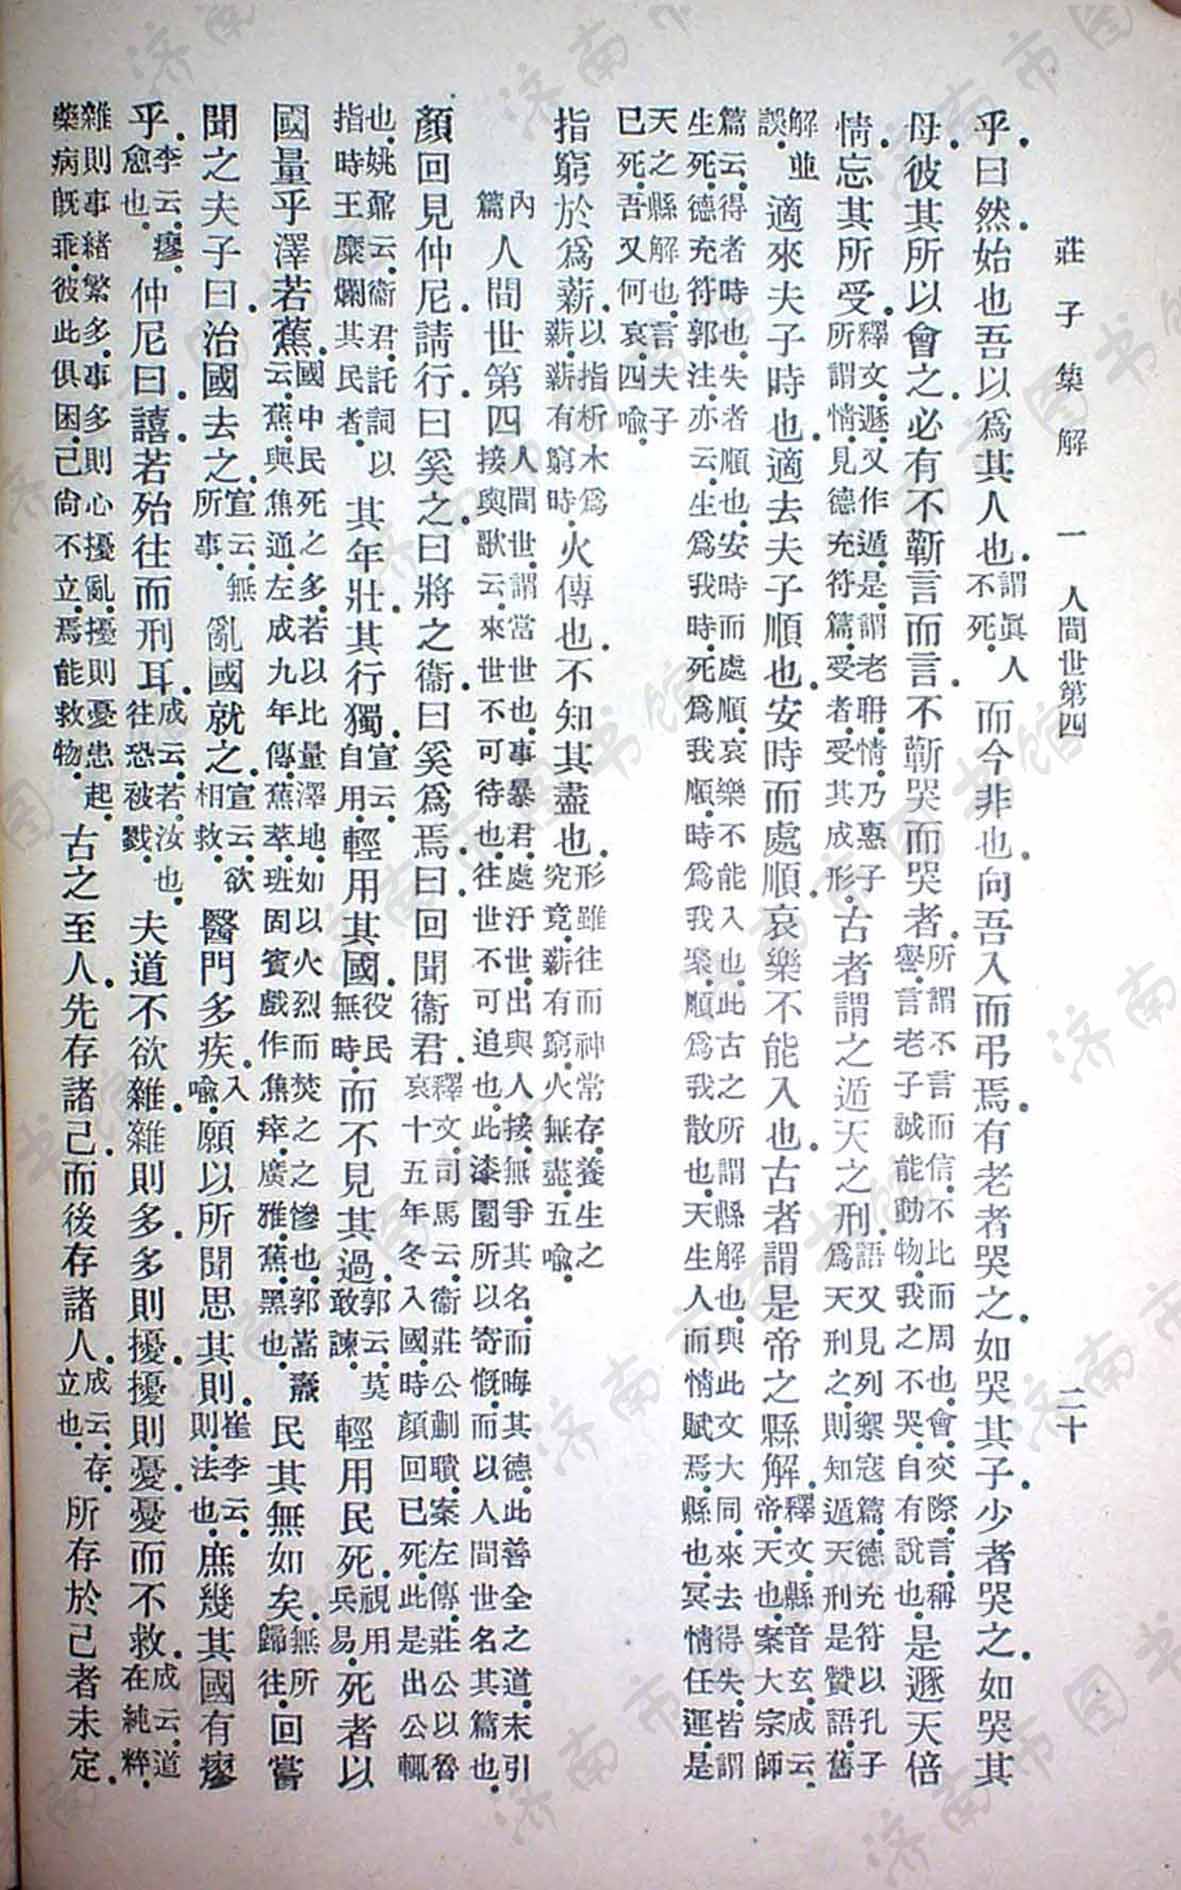 莊子集解 一 人間世第四 二十
乎。曰。然。始也吾以爲其人也。謂眞人不死。而今非也。向吾入而弔焉。有老者哭之。如哭其子。少者哭之。如哭其
母。彼其所以會之。必有不蘄言而言。不蘄哭而哭者。所謂不言而信不比而周也。會交際。言稱譽。言老子誠能動物。我之不哭。自有說也。是遯天倍
情。忘其所受。釋文遯。又作遁。是。謂老聃。情乃惠子所謂情。見德充符篇。受者。受其成形。古者謂之遁天之刑。語又見列禦寇篇。德充符以孔子爲天刑之。則知遁天刑是贊語。舊
解並誤。適來夫子時也。適去夫子順也。安時而處順。哀樂不能入也。古者謂是帝之縣解。釋文縣音玄。成云。帝。天也。案大宗師
篇云。得者時也。失者順也。安時而處順。哀樂不能入也。此古之所謂縣解也。與此文大同。來去得失。皆謂生死。德充符郭注。亦云。生爲我時。死爲我順。時爲我聚。順爲我散也。天生人而情賦焉。縣也。冥情任運。是
天之縣解也。言夫子已死。吾又何哀。四喩。
指窮於爲薪。以指析木爲薪。薪有窮時。火傳也。不知其盡也。形雖往而神常存。養生之究竟。薪有窮。火無盡。五喩。
內篇人間世第四人間世。謂當世也。事暴君。處汙世。出與人接。無爭其名。而晦其德。此善全之道。末引接輿歌云。來世不可待也。往世不可追也。此漆園所以寄慨。而以人間世名其篇也。
顏回見仲尼。請行。曰。奚之。曰。將之衞。曰。奚爲焉。曰。回聞衞君。釋文。司馬云。衞莊公蒯聵。案左傳。莊公以魯哀十五年冬入國。時顏回已死。此是出公輒
也。姚鼐云。衞君。託詞以指時王糜爛其民者。其年壯。其行獨。宣云。自用。輕用其國。役民無時。而不見其過。郭云。莫敢諫。輕用民死。視用兵易。死者以
國量乎澤若蕉。國中民死之多。若以比量澤地。如以火烈而焚之之慘也。郭嵩燾云。蕉與焦通。左成九年傳。蕉萃。班固賓戲作焦瘁。廣雅。蕉。黑也。民其無如矣。無所歸往。回嘗
聞之夫子曰。治國去之。宣云。無所事。亂國就之。宣云。欲相救。醫門多疾。入喩。願以所聞思其則。崔李云。則。法也。庶幾其國有瘳
乎。李云。瘳。愈也。仲尼曰。譆。若殆往而刑耳。成云。若。汝也。往恐被戮。夫道不欲雜。雜則多。多則擾。擾則憂。憂而不救。成云。道在純粹。
雜則事緒繁多。事多則心擾亂。擾則憂患起。藥病旣乖。彼此俱困。己尙不立。焉能救物。古之至人。先存諸己。而後存諸人。成云。存。立也。所存於己者未定。